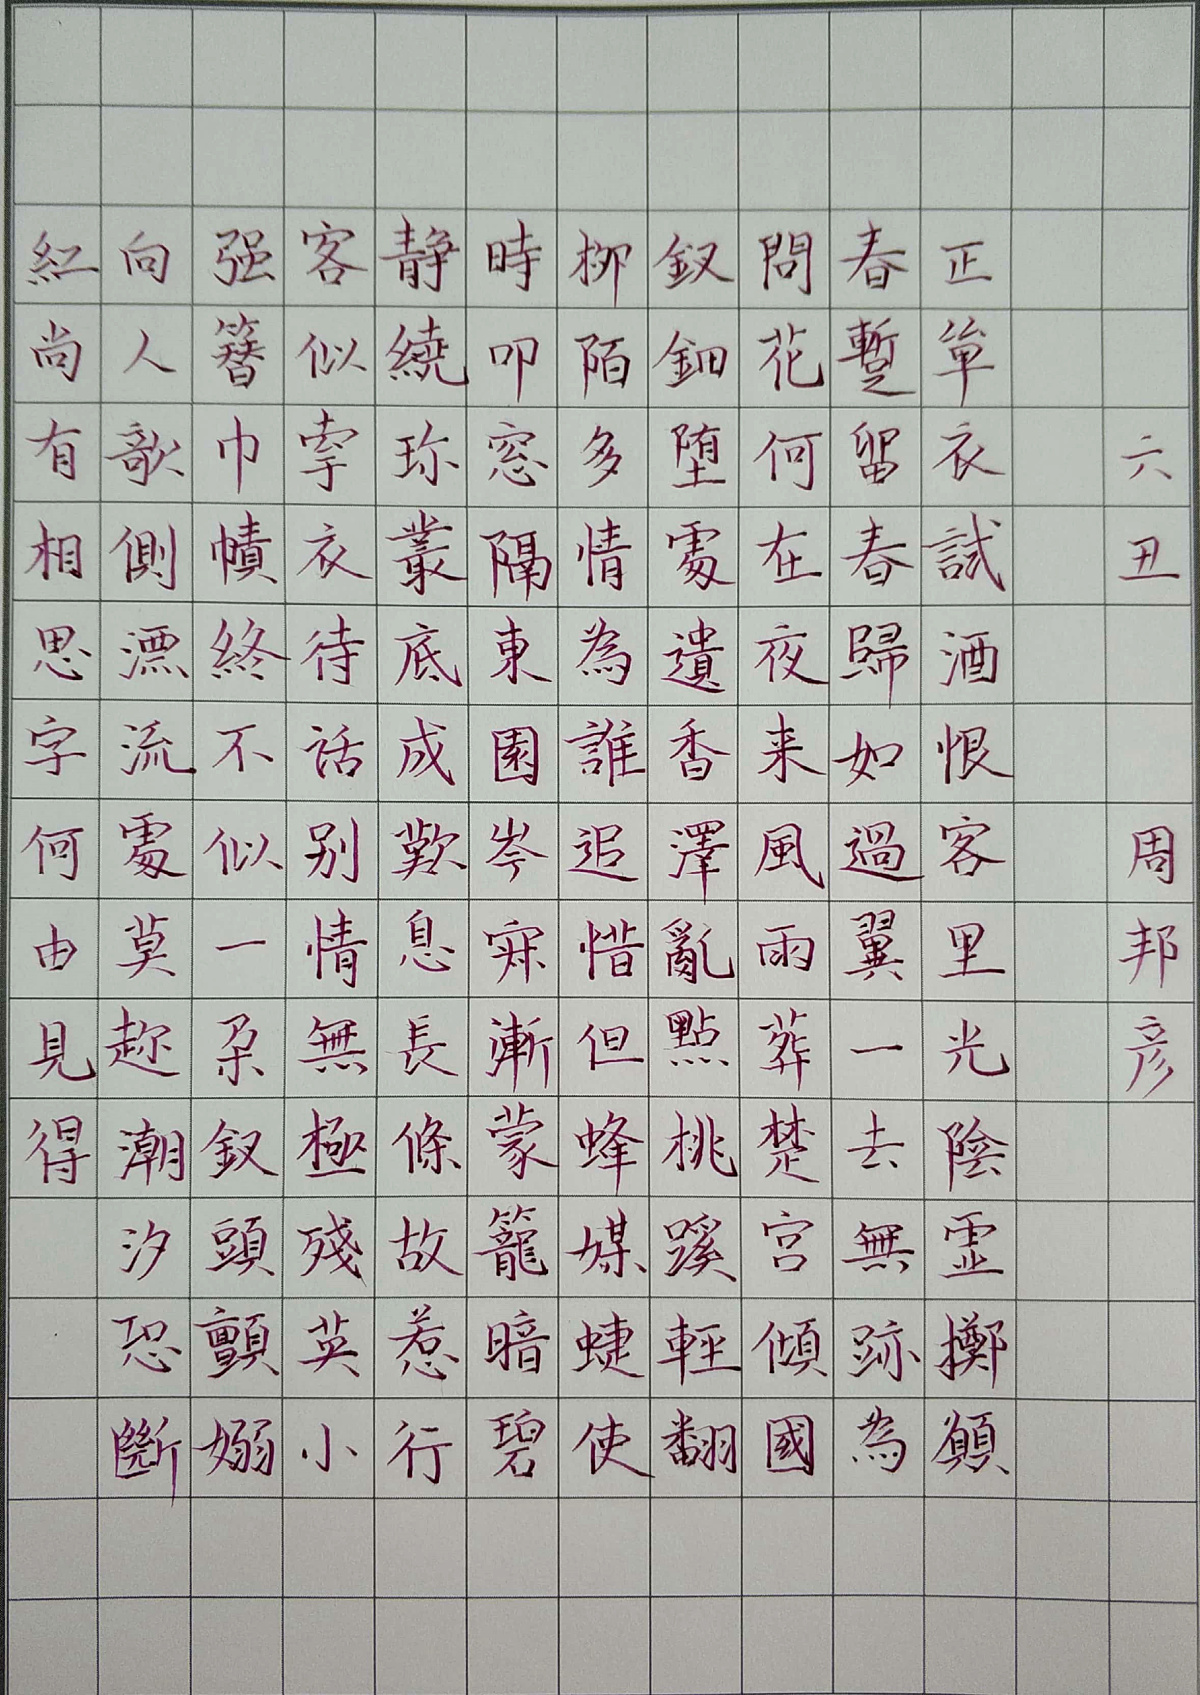 六丑 周邦彦
正單衣試酒恨客里光陰虛擲願
春暫留春歸如過翼一去無跡為
問花何在夜来風雨葬楚宫傾國
釵鈿堕處遺香澤亂點桃蹊輕翻
柳陌多情為誰追惜但蜂媒蜨使
時叩窓隔東園岑寂漸蒙籠暗碧
静繞珎叢底成歎息長條故惹行
客似牽衣待話别情無極殘英小
强簪巾幘終不似一朵釵頭顫嫋
向人欹側漂流處莫趂潮汐恐斷
紅尚有相思字何由見得